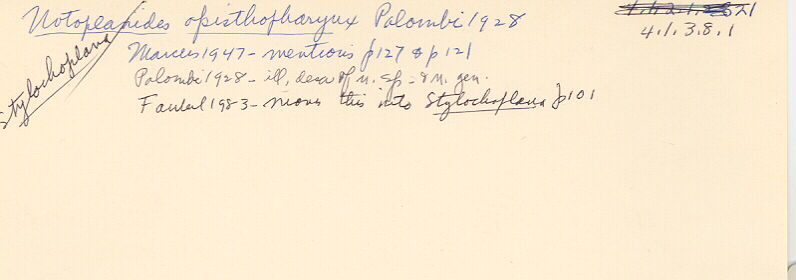 Notoplanides opisthopharynx Palombi 1928
4.1.3.8.1
Stylochoplana
Marcus 1947 - mentions p127 & p121
Palombi 1928 - ill, desc of n. sp - & n. gen.
Faubel 1983 - moves this into Stylochoplana p101